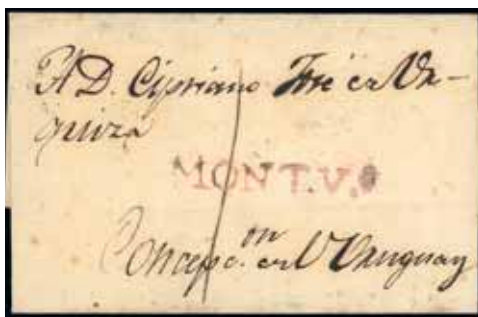 A D. Cipriano José de Ur-
quiza
MONT.V.º
Concepc.on del Uruguay